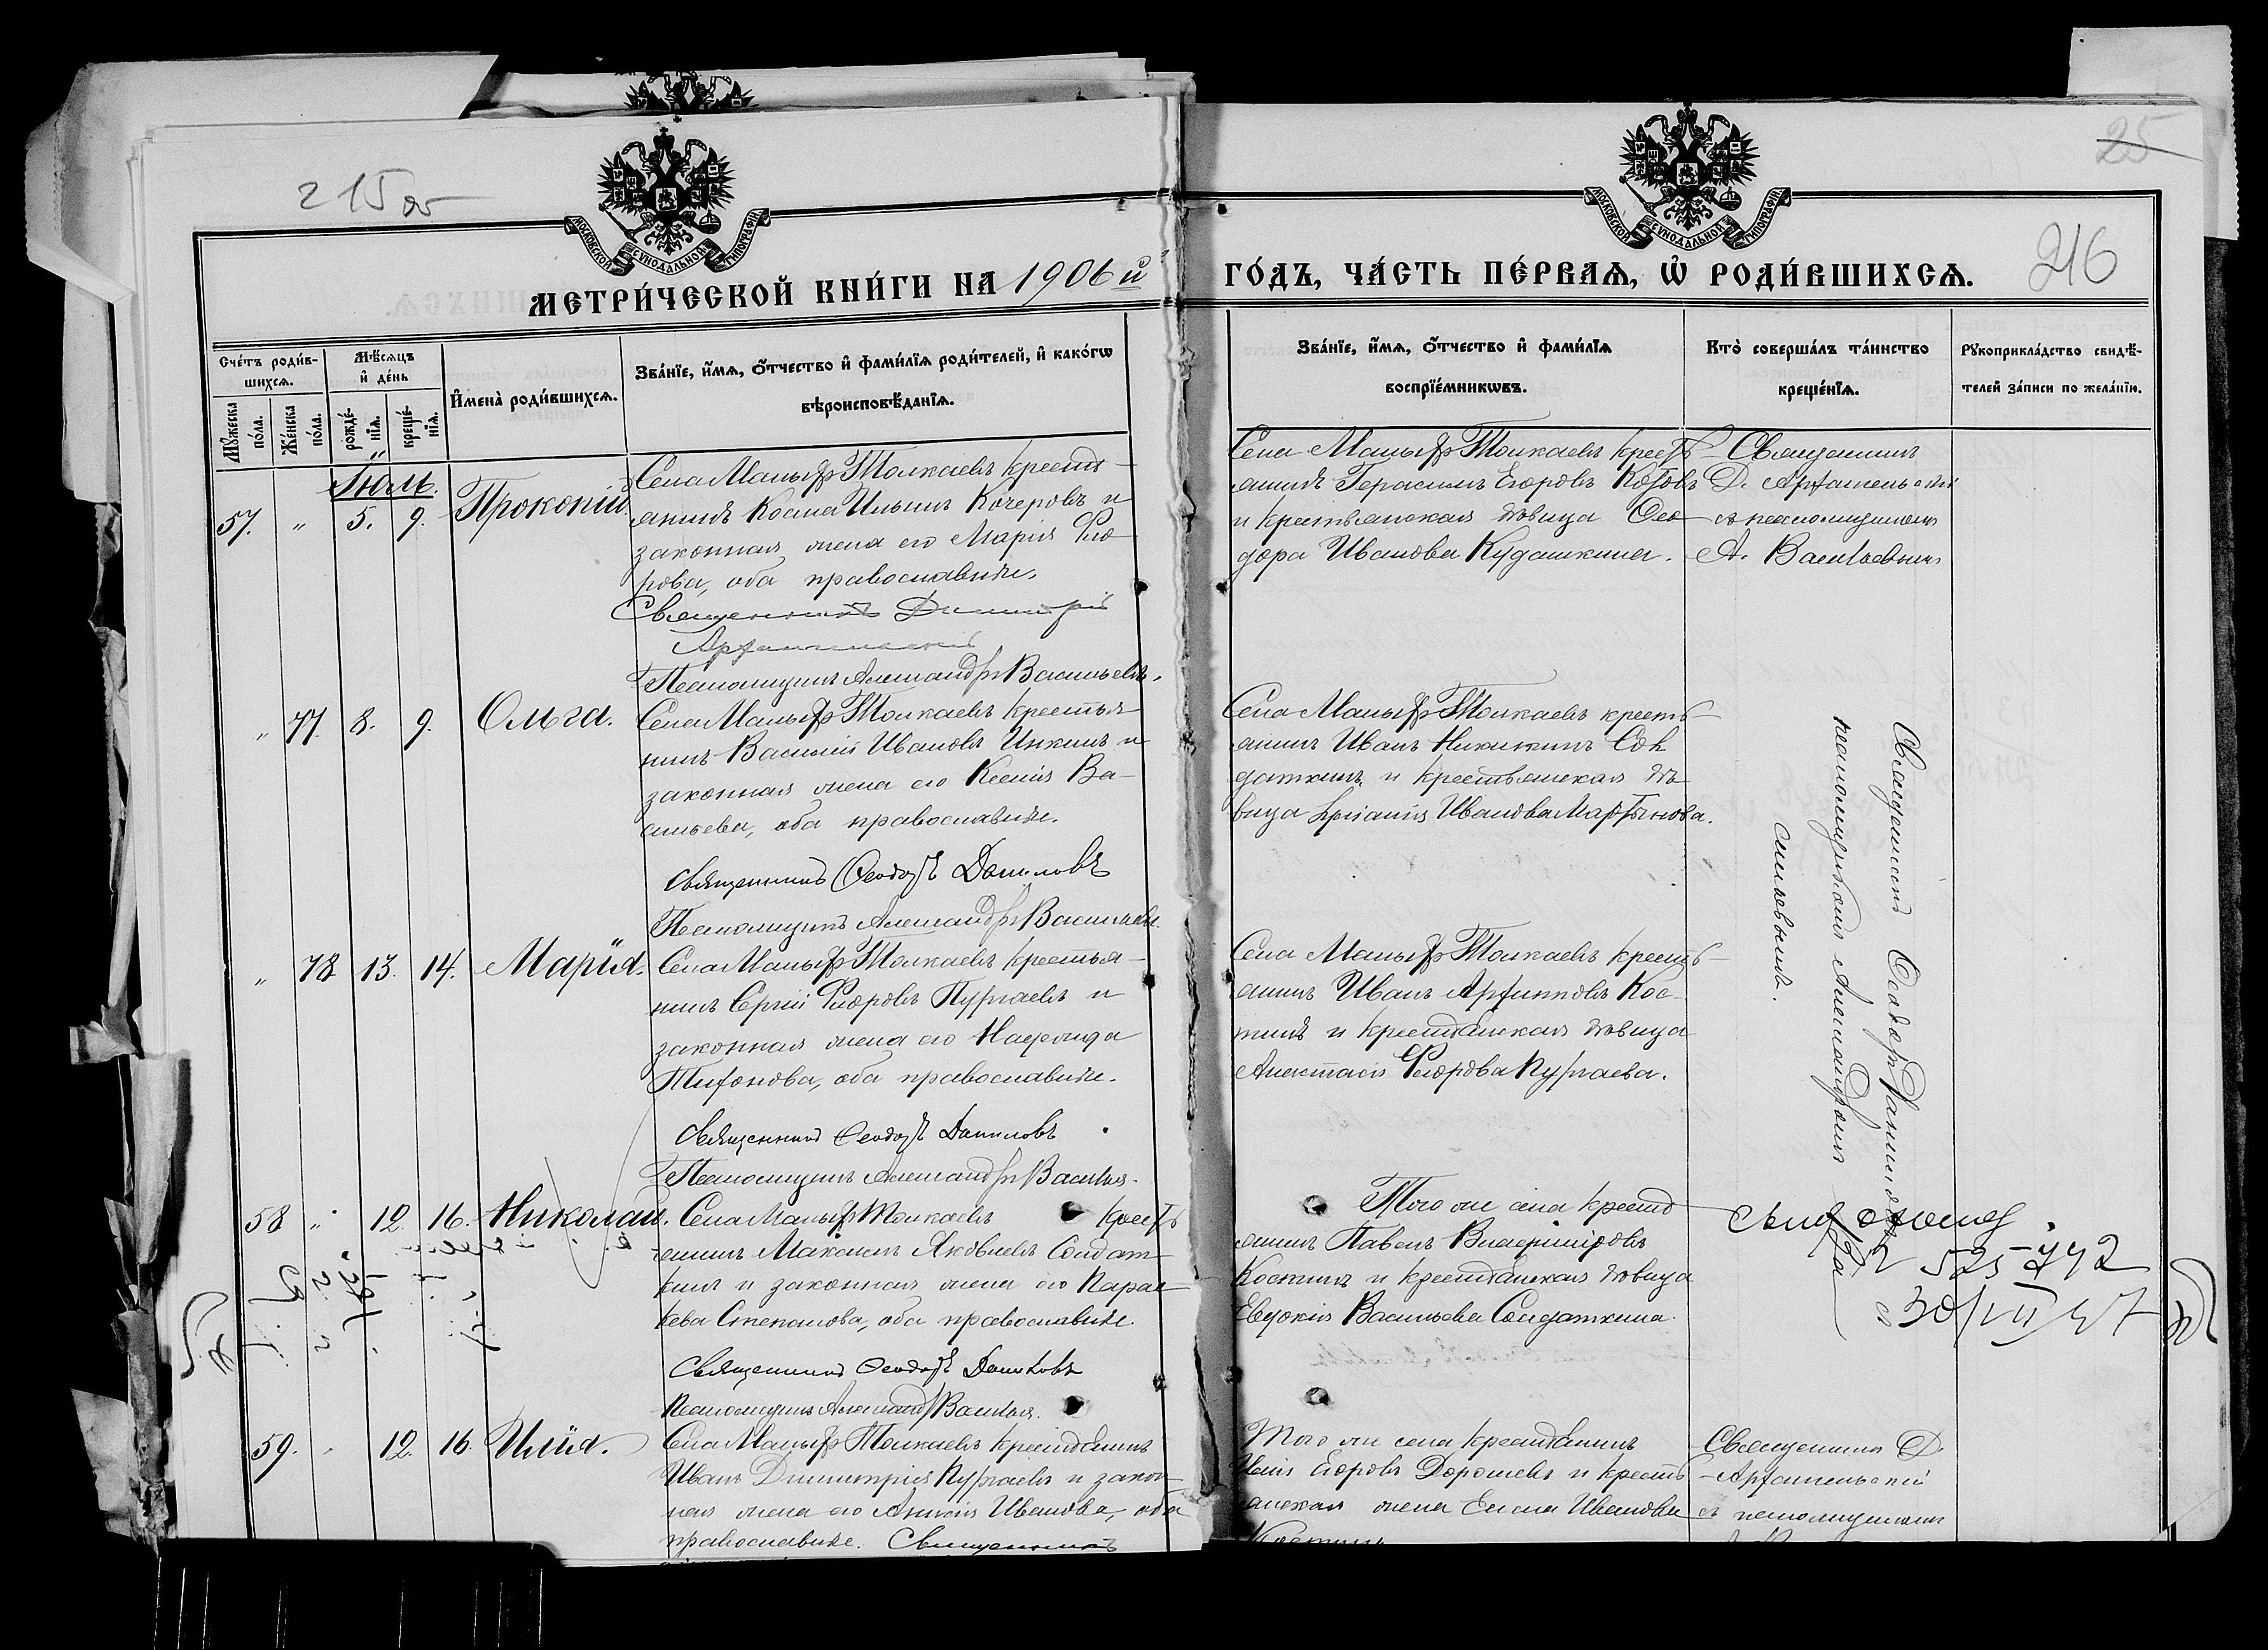 215 об
25
216
МОСКОВСКОЙ СѴНОДАЛЬНОЙ ТИПОГРАФІИ
МОСКОВСКОЙ СѴНОДАЛЬНОЙ ТИПОГРАФІИ
МЕТРИ́ЧЕСКОЙ КНИ́ГИ НА 1906 й
ГО́ДЪ, ЧА́СТЬ ПЕ́РВАѦ, Ѡ҆ РОДИ́ВШИХСѦ.
Сче́тъ роди́в-
шихсѧ.
Мꙋ́жеска по́ла.
Же́нска по́ла.
Мѣ́сѧцъ и҆ де́нь
рожде́-нїѧ.
креще́-нїѧ.
И҆мена̀ роди́вшихсѧ.
Зва́нїе, и҆́мѧ, ѻ҆́тчество и҆ фами́лїѧ роди́телей, и҆ како́гѡ
вѣроисповѣ́данїѧ.
Зва́нїе, и҆́мѧ, ѻ҆́тчество и҆ фами́лїѧ
воспрїе́мникѡвъ.
Кто̀ соверша́лъ та́инство
креще́нїѧ.
Рꙋкоприкла́дство свидѣ́-
телей за́писи по жела́нїю.
Іюль.
57. " 5. 9. Прокопій
Села Малыхъ Толкаевъ крестья-
нинъ Косма Ильинъ Кочеровъ и
законная жена его Марія Фео-
рова, оба православные.
Священникъ Димитрій
Архангельскій
Псаломщикъ Александръ Васильевъ.
Села Малыхъ Толкаевъ кресть-
янинъ Герасимъ Егоровъ Котовъ
и крестьянская дѣвица Ѳео-
дора Иванова Кудашкина.
Священникъ
Д. Архангельскій
съ псаломщикомъ
А. Васильевымъ
" 77. 8. 9. Ольга.
Села Малыхъ Толкаевъ крестья-
нинъ Василій Ивановъ Инкинъ и
законная жена его Ксенія Ва-
сильева, оба православные.
Священникъ Ѳеодоръ Даниловъ
Псаломщикъ Александръ Васильевъ.
Села Малыхъ Толкаевъ кресть-
янинъ Иванъ Никитинъ Сол
даткинъ и крестьянская дѣ-
вица Іуліанія Иванова Мартынова.
Священникъ Ѳеодоръ Даниловъ
псаломщикомъ Александромъ Ва-
сильевымъ.
" 78 13. 14. Марія.
Села Малыхъ Толкаевъ крестья-
нинъ Сергій Ѳеоровъ Пургаевъ и
законная жена его Надежда
Тихонова, оба православные.
Священникъ Ѳеодоръ Даниловъ
Псаломщикъ Александръ Васильев.
Села Малыхъ Толкаевъ кресть-
янинъ Иванъ Архиповъ Кос-
тинъ и крестьянская дѣвица
Анастасія Ѳеорова Пургаева.
58 " 12. 16. Николай.
Села Малыхъ Толкаевъ кресть
янинъ Максимъ Яковлевъ Солдат-
кинъ и законная жена его Парас-
кева Степанова, оба православные.
Священникъ Ѳеодоръ Даниловъ
Псаломщикъ Александръ Васильев.
Того же села кресть
янинъ Павелъ Владиміровъ
Костинъ и крестьянская дѣвица
Евдокія Васильева Солдаткина.
525742
30/VII 47
59. " 12. 16. Илія.
Села Малыхъ Толкаевъ крестьянинъ
Иванъ Димитріев Пургаевъ и закон-
ная жена его Анисія Иванова, оба
православные. Священникъ
Того же села крестьянинъ
Егоровъ Дорошевъ и кресть-
янская жена Елена Иванова
Костина
Священникъ Д.
Архангельскій
съ псаломщикомъ